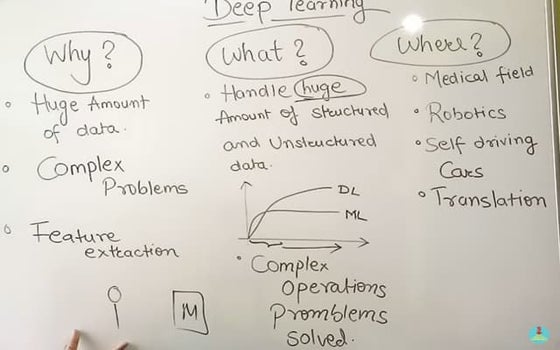 Deep learning
Why?
Huge Amount
of data.
Complex
Problems
Feature
extraction
M
What?
Handle huge
Amount of structured
and Unstructured
data.
DL
ML
Complex
Operations
Promblems
Solved.
Where?
Medical field
Robotics
Self driving
Cars
Translation